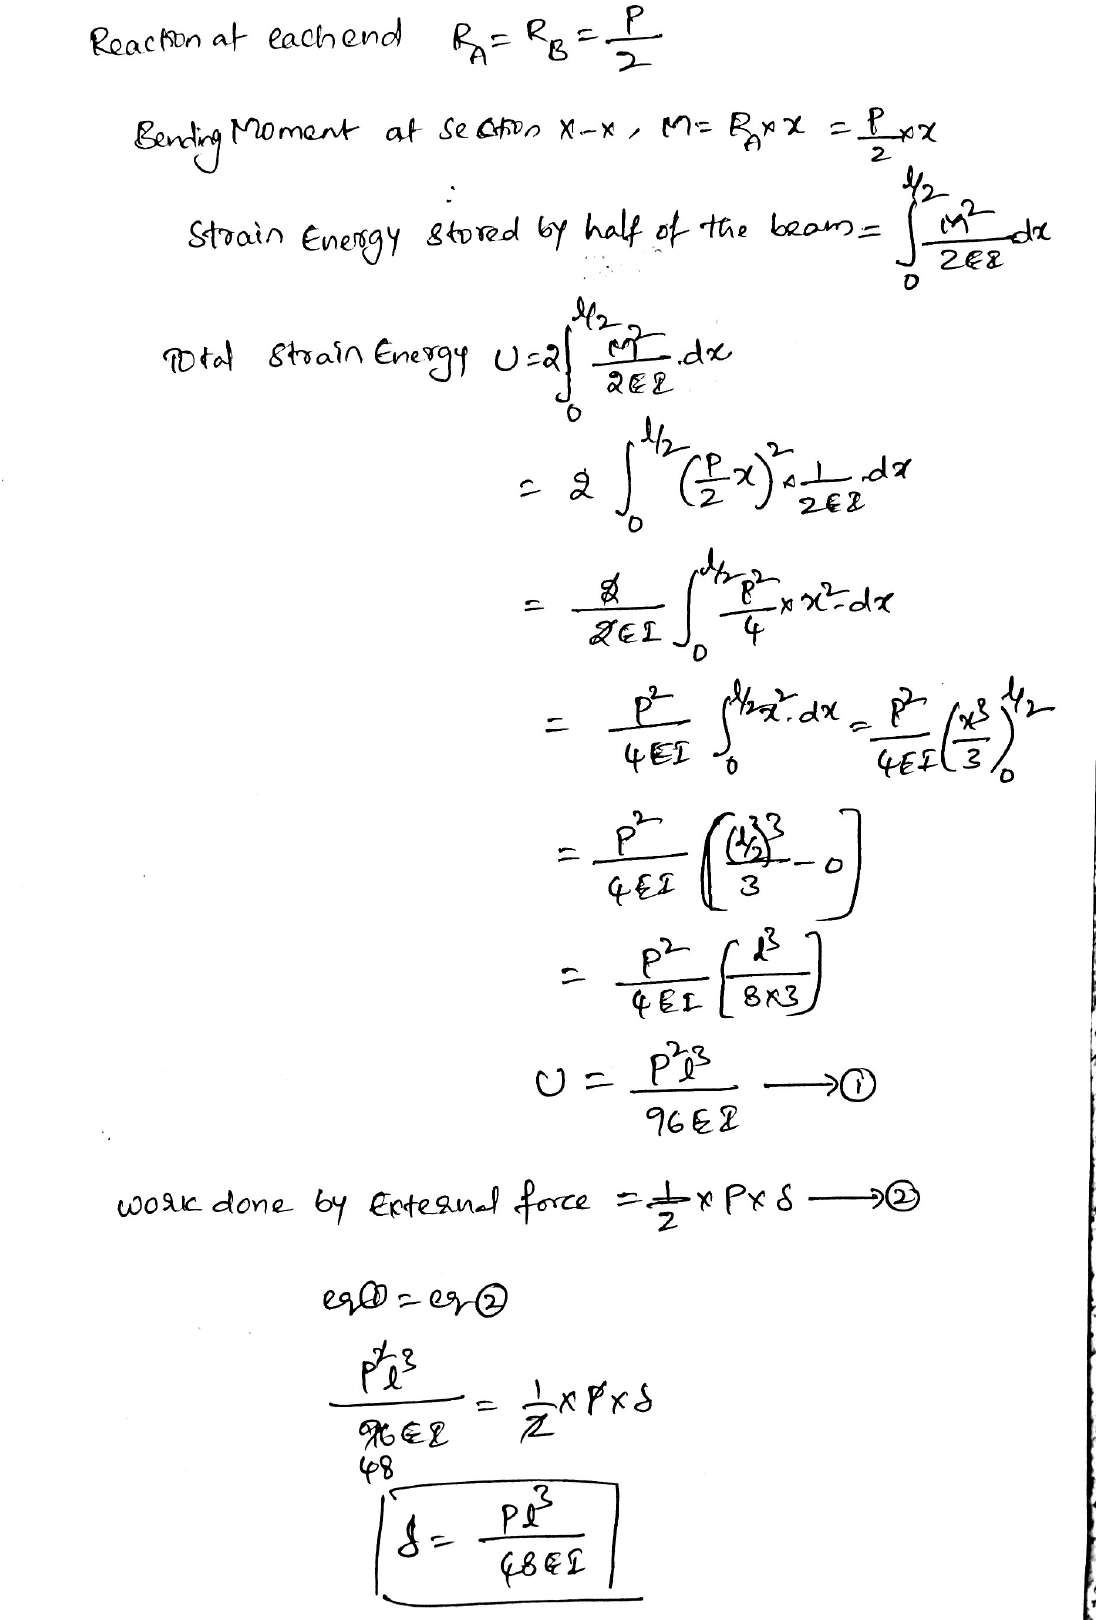 Reaction at each end R_A = R_B = P/2
Bending Moment at section x-x, M = R_A × x = P/2 × x
Strain Energy stored by half of the beam = ∫₀^{l/2} M²/2EI dx
Total Strain Energy U = 2∫₀^{l/2} M²/2EI .dx
= 2 ∫₀^{l/2} (P/2 x)² × 1/2EI .dx
= 2/2EI ∫₀^{l/2} P²/4 × x² dx
= P²/4EI ∫₀^{l/2} x². dx = P²/4EI (x³/3)₀^{l/2}
= P²/4EI [(l/2)³/3 - 0]
= P²/4EI [l³/8×3]
U = P²l³/96EI → ①
work done by External force = 1/2 × P × δ → ②
eq① = eq②
P²l³/96EI = 1/2 × P × δ
48
δ = Pl³/48EI